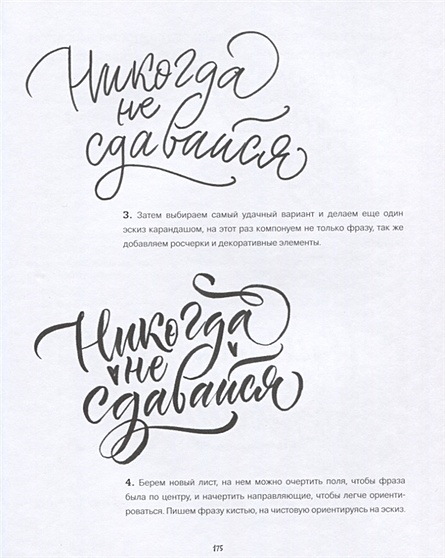 Никогда
не
сдавайся
3. Затем выбираем самый удачный вариант и делаем еще один
эскиз карандашом, на этот раз компонуем не только фразу, так же
добавляем росчерки и декоративные элементы.
Никогда
не
сдавайся
4. Берем новый лист, на нем можно очертить поля, чтобы фраза
была по центру, и начертить направляющие, чтобы легче ориенти-
роваться. Пишем фразу кистью, на чистовую ориентируясь на эскиз.
175